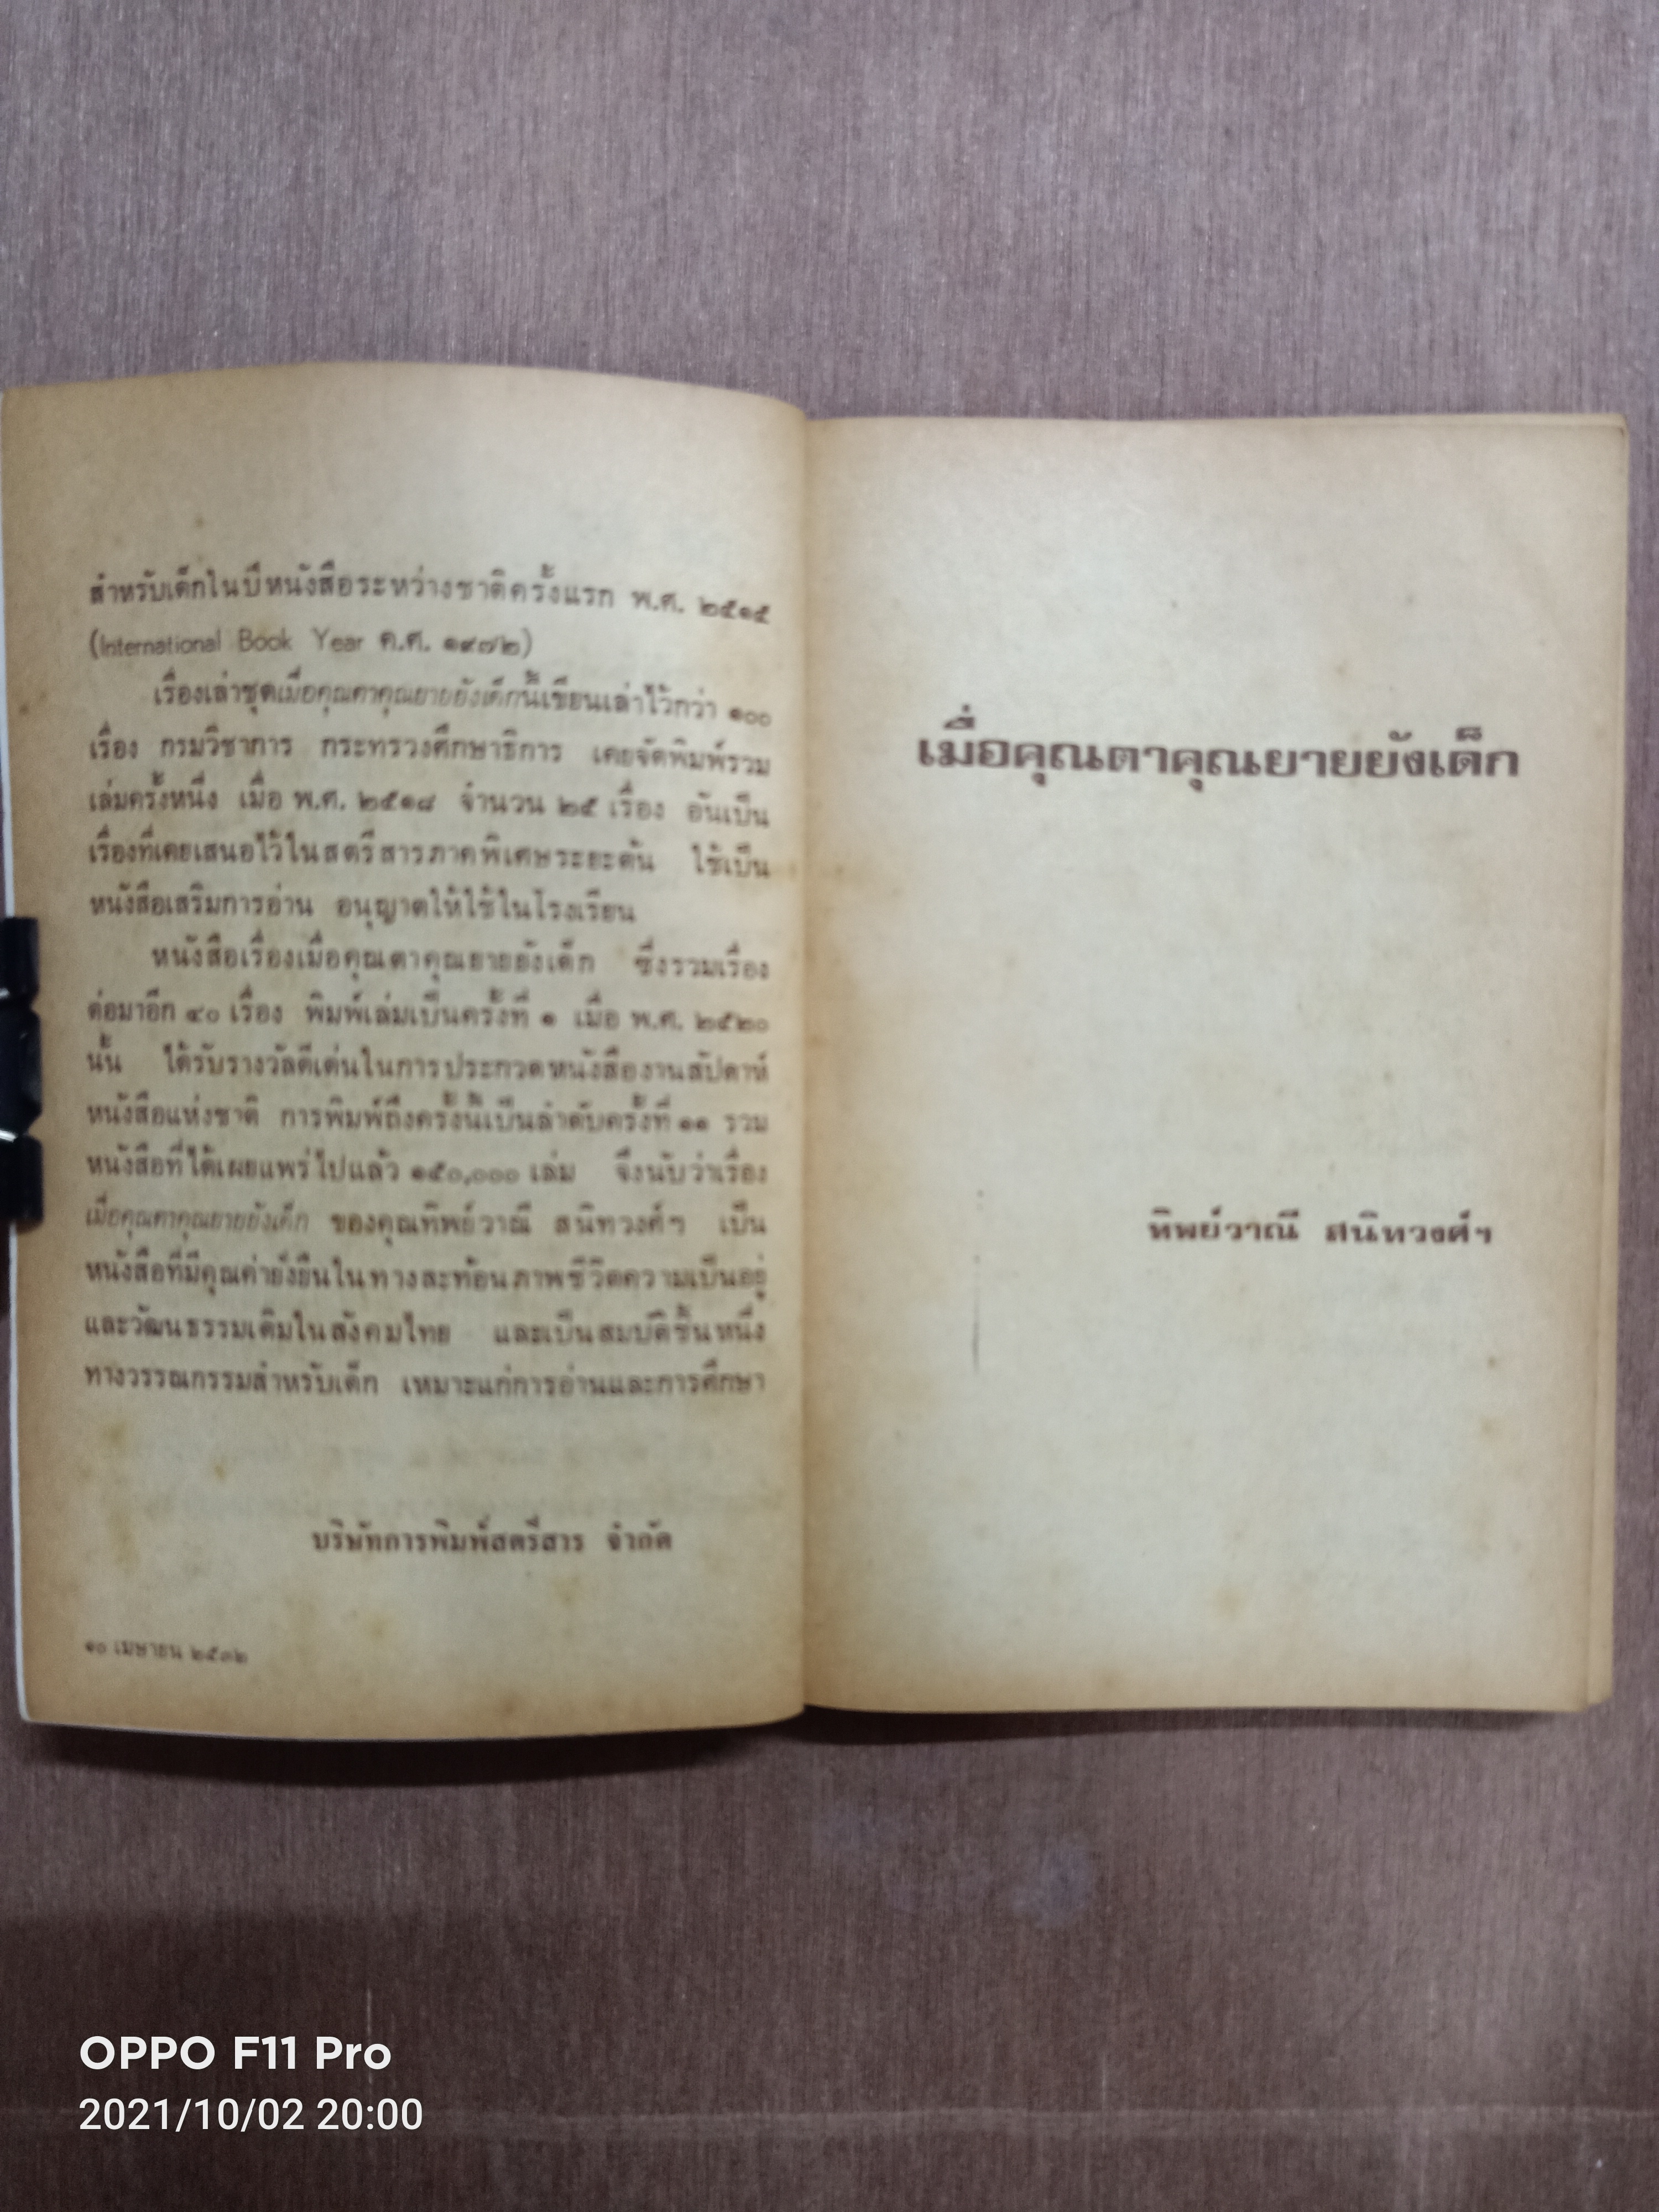 สำหรับเด็กในปีหนังสือระหว่างชาติครั้งแรก พ.ศ. ๒๕๑๕
(International Book Year ค.ศ. ๑๙๗๒)
เรื่องเล่าชุดเมื่อคุณตาคุณยายยังเด็กนี้เขียนเล่าไว้กว่า ๑๐๐
เรื่อง กรมวิชาการ กระทรวงศึกษาธิการ เคยจัดพิมพ์รวม
เล่มครั้งหนึ่ง เมื่อ พ.ศ. ๒๕๑๘ จำนวน ๒๕ เรื่อง อันเป็น
เรื่องที่เคยเสนอไว้ในสตรีสารภาคพิเศษระยะต้น ใช้เป็น
หนังสือเสริมการอ่าน อนุญาตให้ใช้ในโรงเรียน
หนังสือเรื่องเมื่อคุณตาคุณยายยังเด็ก ซึ่งรวมเรื่อง
ต่อมาอีก ๔๐ เรื่อง พิมพ์เล่มเป็นครั้งที่ ๑ เมื่อ พ.ศ. ๒๕๒๐
นั้น ได้รับรางวัลดีเด่นในการประกวดหนังสืองานสัปดาห์
หนังสือแห่งชาติ การพิมพ์ถึงครั้งนี้เป็นลำดับครั้งที่ ๑๑ รวม
หนังสือที่ได้เผยแพร่ไปแล้ว ๑๕๐,๐๐๐ เล่ม จึงนับว่าเรื่อง
เมื่อคุณตาคุณยายยังเด็ก ของคุณทิพย์วาณี สนิทวงศ์ฯ เป็น
หนังสือที่มีคุณค่ายั่งยืนในทางสะท้อนภาพชีวิตความเป็นอยู่
และวัฒนธรรมเดิมในสังคมไทย และเป็นสมบัติชิ้นหนึ่ง
ทางวรรณกรรมสำหรับเด็ก เหมาะแก่การอ่านและการศึกษา
บริษัทการพิมพ์สตรีสาร จำกัด
๑๐ เมษายน ๒๕๓๒
เมื่อคุณตาคุณยายยังเด็ก
ทิพย์วาณี สนิทวงศ์ฯ
OPPO F11 Pro
2021/10/02 20:00